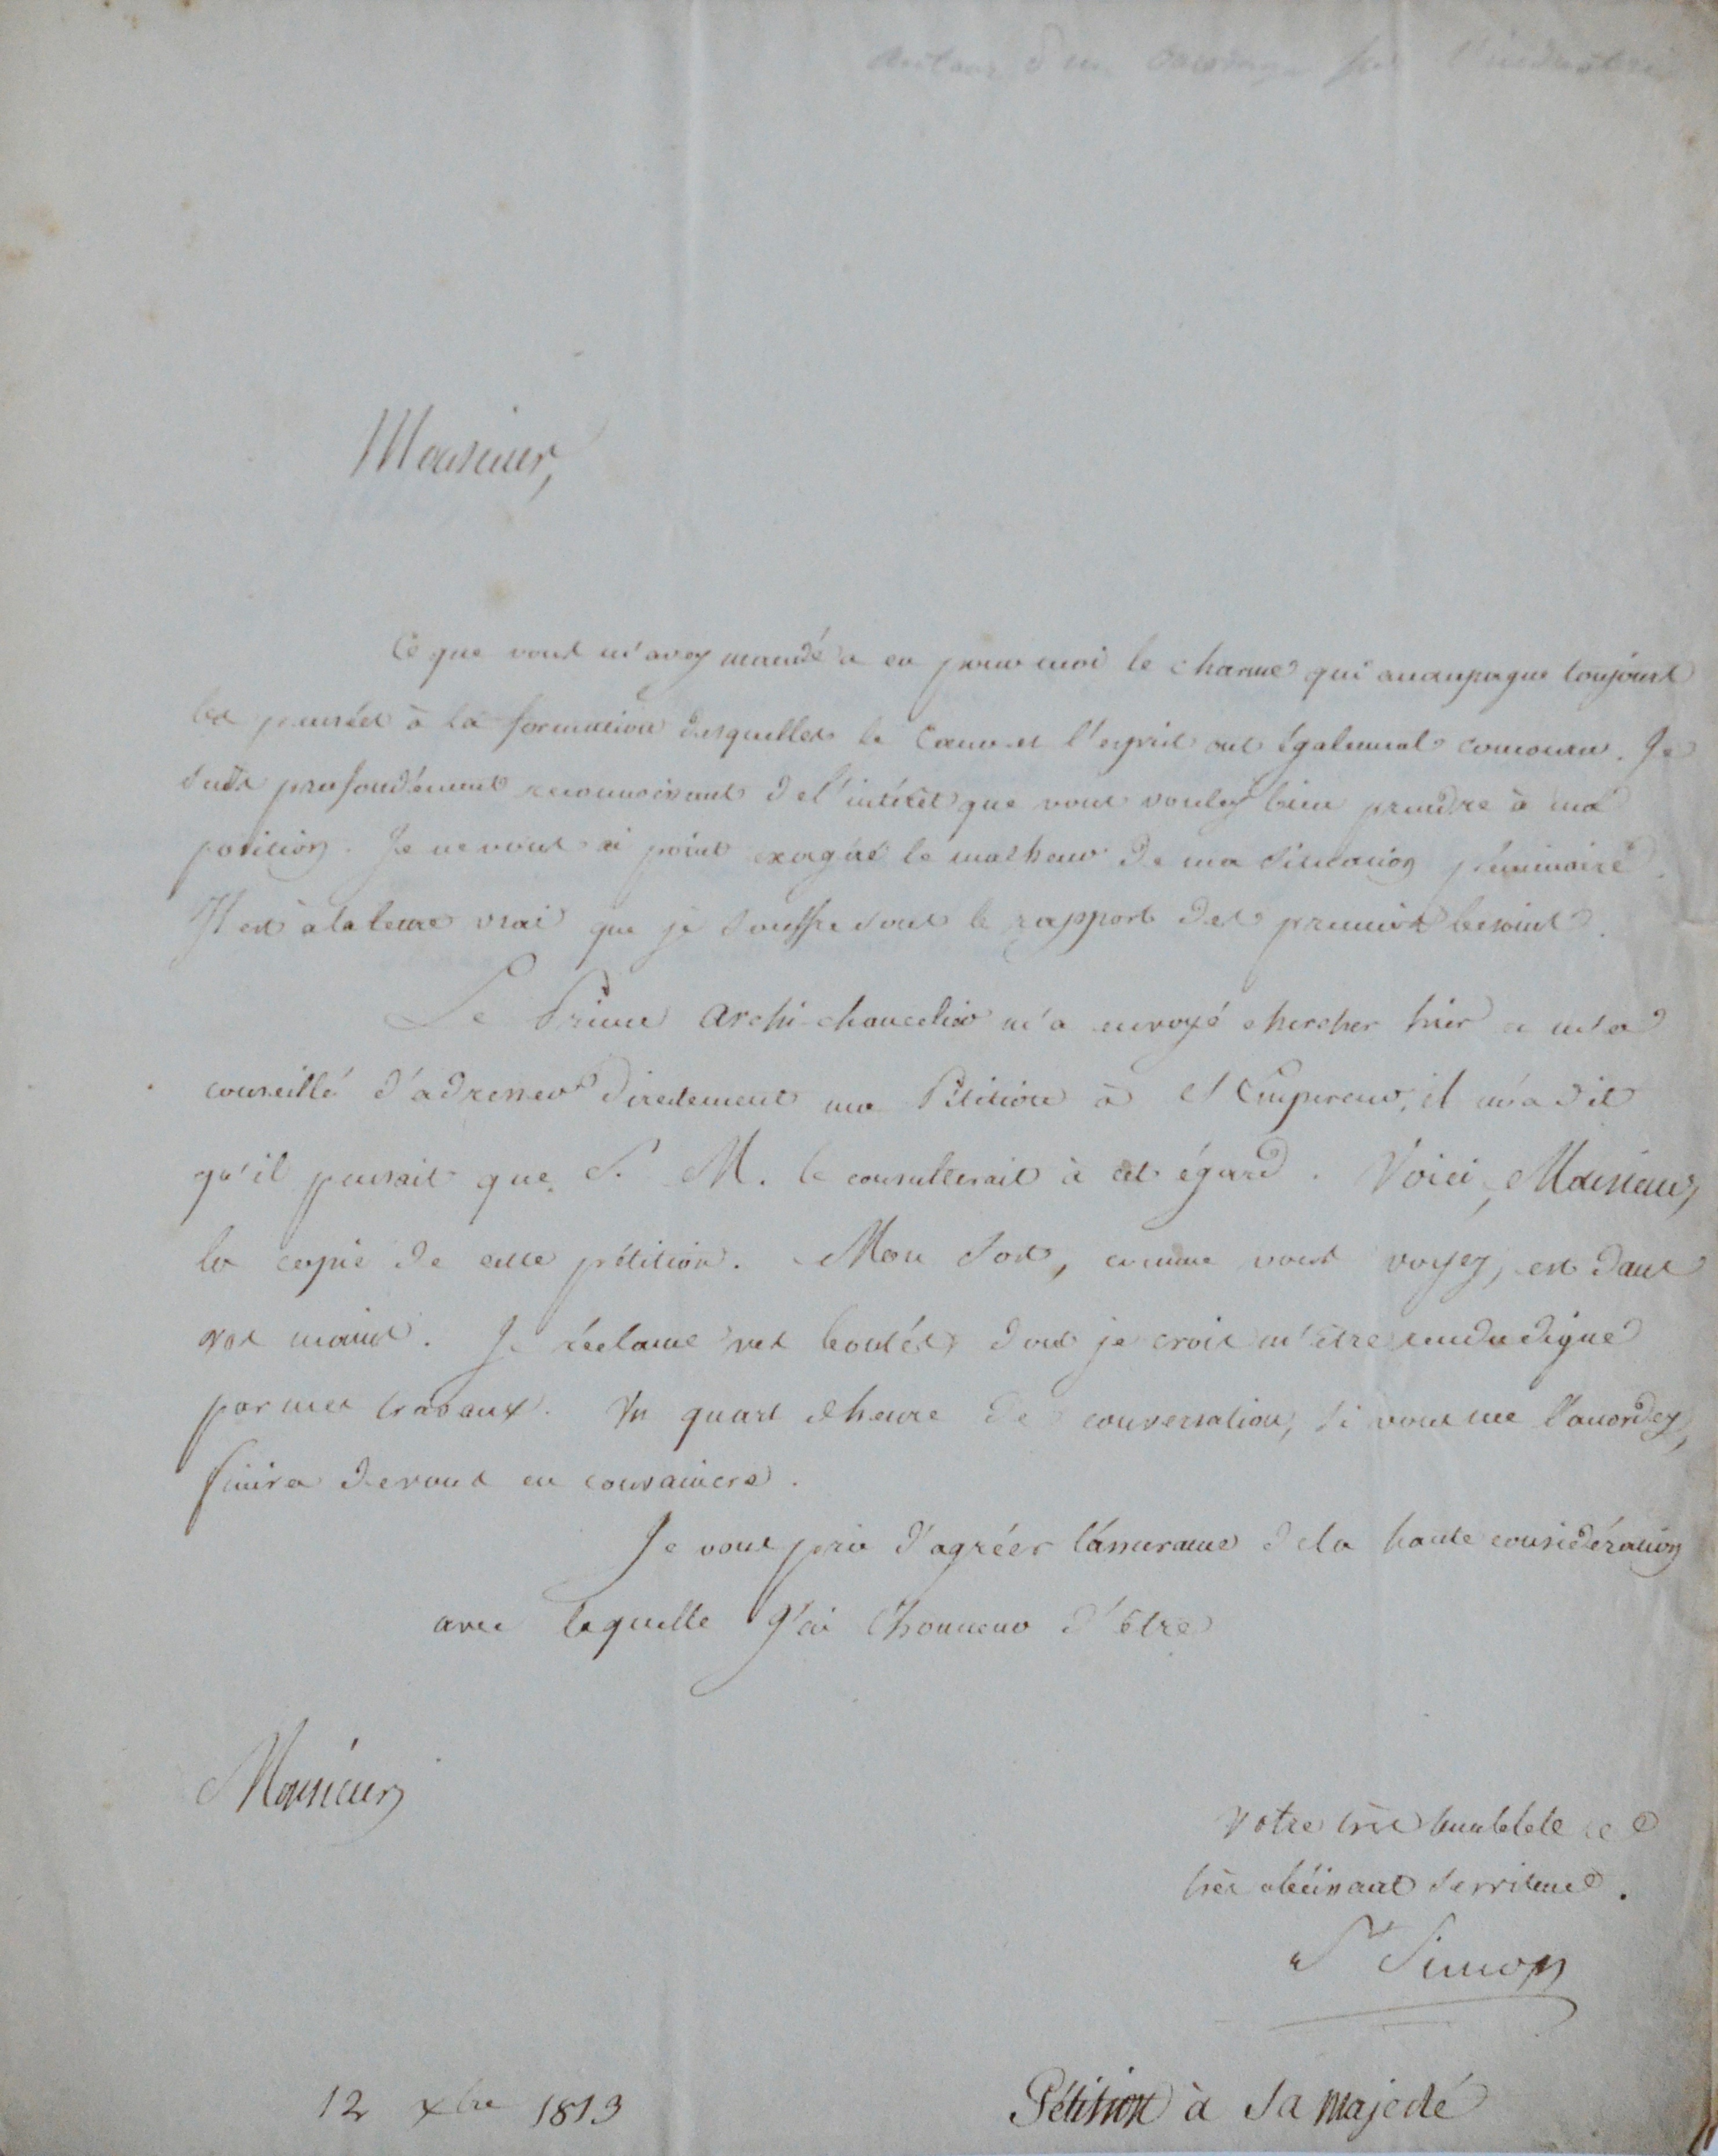 Auteur d'un ouvrage sur l'industrie
Monsieur,
Ce que vous m'avez mandé a eu pour moi le charme qui accompagne toujours
les pensées à la formation desquelles le Cœur et l'esprit ont également concouru. Je
suis profondément reconnoissant de l'intérêt que vous voulez bien prendre à ma
position. Je ne vous ai point exagéré le malheur de ma situation pécuniaire.
Il est à la lettre vrai que je souffre sous le rapport des premiers besoins.
Le Prince Archi-chancelier m'a envoyé chercher hier et m'a
conseillé d'adresser directement ma Pétition à l'Empereur, il m'a dit
qu'il pensait que S. M. le consulterait à cet égard. Voici, Monsieur,
la copie de cette pétition. Mon sort, comme vous voyez, est dans
vos mains. Je réclame vos bontés, dont je crois m'être rendu digne
par mes travaux. Un quart d'heure de conversation, si vous me l'accordez,
finira de vous en convaincre.
Je vous prie d'agréer l'assurance de la haute considération
avec laquelle J'ai l'honneur d'être
Monsieur
Votre très humble et
très obéissant serviteur.
St Simon
12 xbre 1813
Pétition à Sa Majesté